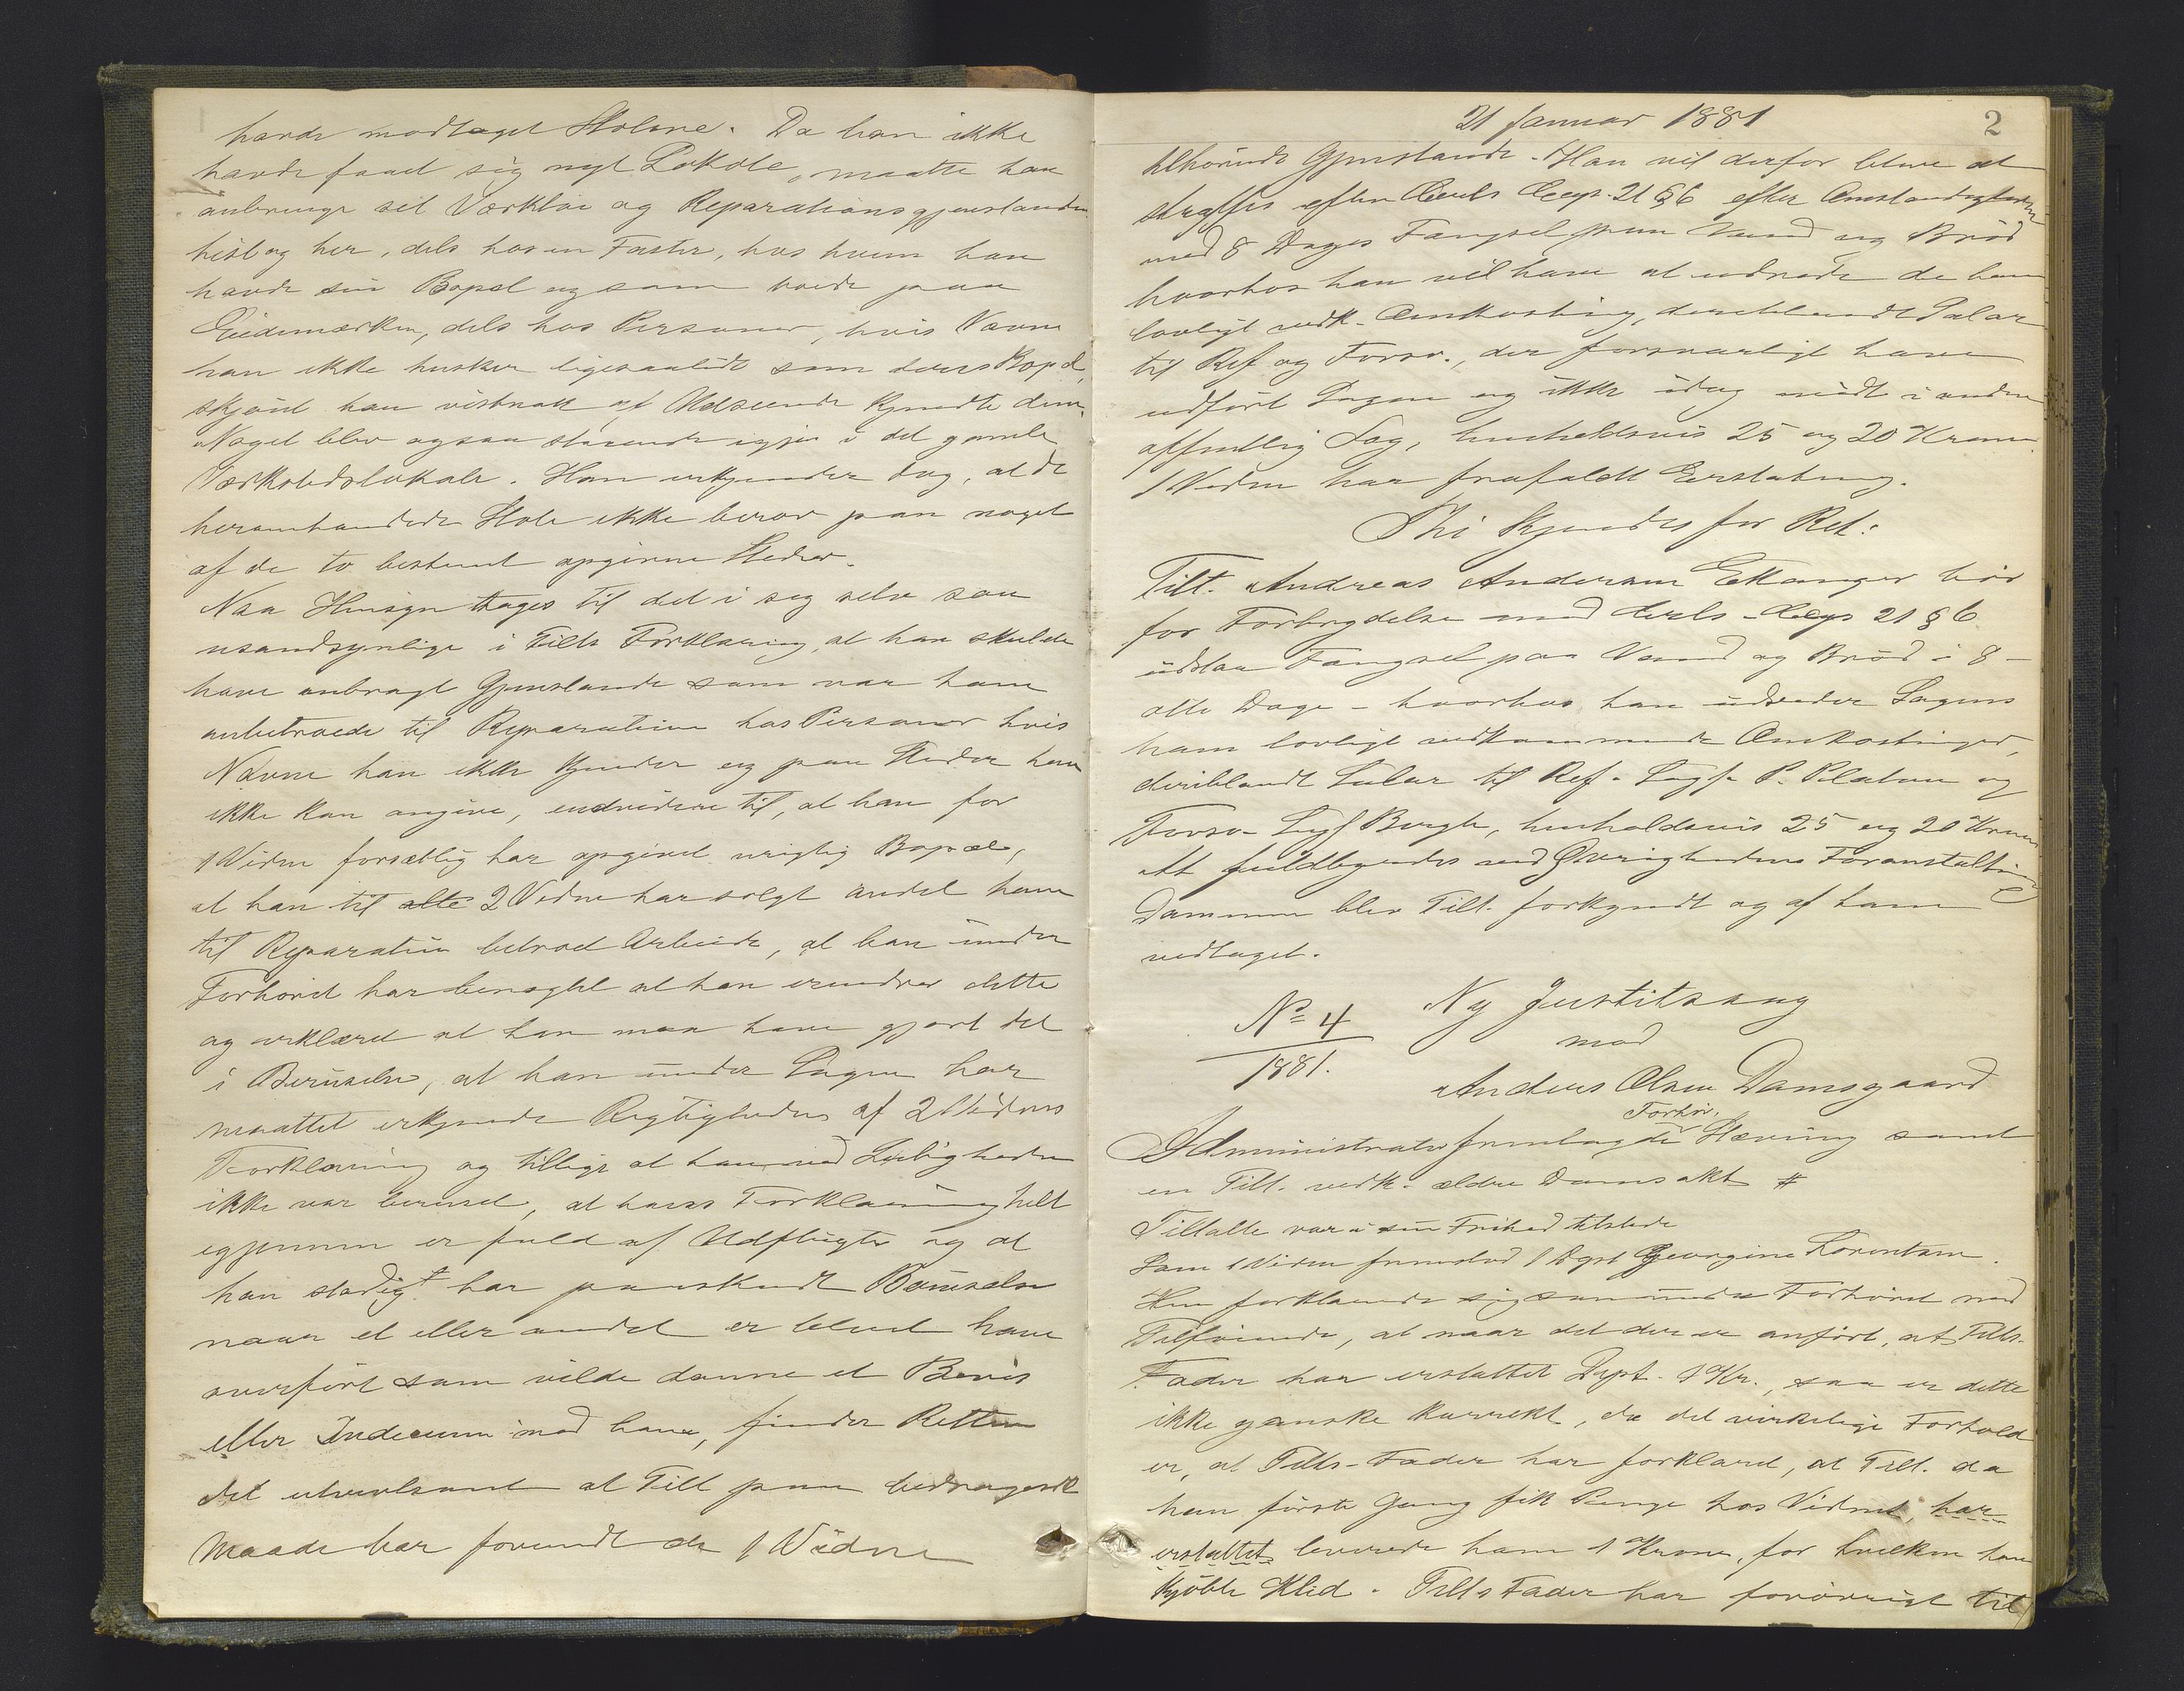 havde modtaget Stolene. Da han ikke
havde faaet sig nyt Lokale, maatte han
anbringe sit Værktøi og Reparationsgjenstande
hist og her, dels hos en Faster, hos hvem han
havde sin Bopæl og som boede paa
Eidemarken, dels hos Personer, hvis Navne
han ikke husker ligesaalidt som deres Bopæl,
skjönt han vistnok af Udseende kjendte dem.
Noget blev ogsaa staaende igjen i det gamle
Værkstedslokale. Han erkjender dog, at de
heromhandlede Stole ikke beror paa noget
af de to bestemt opgivne Steder.
Naar Hensyn tages til det i sig selv saa
usandsynlige i Tilts Forklaring, at han skulde
have anbragt Gjenstande som var ham
anbetroede til Reparation hos Personer hvis
Navne han ikke kjender og paa Steder han
ikke kan angive, endvidere til, at han for
1 Vidne forsætlig har opgivet urigtig Bopæl,
at han til 2 Vidne har solgt andet ham
til Reparation betroet Arbeide, at han under
Forhöret har benegtet at han erindrer dette
og erklæret at han maa have gjort det
i Beruselse, at han under Sagen har
maattet erkjende Rigtigheden af 2 Vidnes
Forklaring og tillige at han ved Leiligheden
ikke var beruset, at hans Forklaring helt
igjennem er fuld af Udflugter og at
han stadigt har paaskudt Beruselse
naar et eller andet er blevet ham
overfört som vilde danne et Bevis
eller Indicium mod ham, finder Retten
det utvivlsomt at Tilt paa bedragersk
Maade har forvendt de 1 Vidne
21 Januar 1881
2
tilhörende Gjenstande. Han vil derfor blive at
straffes efter Crls Cap. 21 § 6 efter Omstændighederne
med 8 Dages Fængsel paa Vand og Bröd
hvorhos han vil have at udrede de ham
lovligt vedk. Omkostning, deriblandt Salær
til Ref og Forsv., der forsvarligt have
udfört Sagen og ikke idag mödt i anden
offentlig Sag, henholdsvis 25 og 20 Kroner.
1 Vidne har frafaldt Erstatning.
Thi kjendes for Ret:
Tilt. Andreas Andersen Ettanger bör
for Forbrydelse mod Crls Cap 21 § 6
udstaa Fængsel paa Vand og Bröd i 8 -
otte Dage - hvorhos han udreder Sagens
ham lovligt vedkommende Omkostninger,
deriblandt Salær til Ref. Sagf. P. Platou og
Forsv. Sagf Bergh, henholdsvis 25 og 20 Kroner
At fuldbyrdes ved Övrighedens Foranstaltning
Dommen blev Tilt. forkyndt og af ham
vedtaget.
No 4
1881.
Ny Justitssag
mod
Anders Olsen Damsgaard
Forhör,
Administrator fremlagde Hævning samt
en Tilt. vedk. ældre Domsakt #
Tiltalte var i sin Frihed tilstede
Som 1 Vidne fremstod 1 Dept Georgine Lorentsen.
Hun forklarede sig som under Forhöret med
Tilföiende, at naar det der er anfört, at Tilts.
Fader har erstattet Dept. 1 Kr., saa er dette
ikke ganske korrekt, da det virkelige Forhold
er, at Tilts Fader har forklaret, at Tilt. da
han förste Gang fik Penge hos Vidnet, har
erstattet leverede ham 1 Krone, for hvilken han
kjöbte Klid. Tilts Fader har forövrigt til